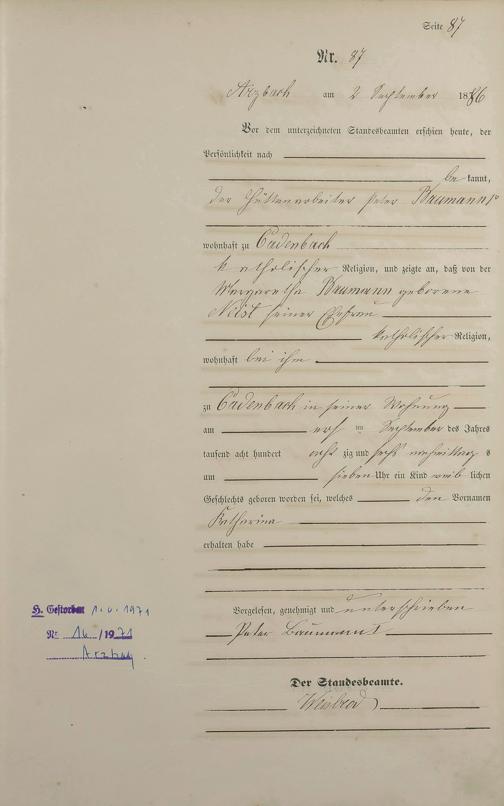 Seite 87
Nr. 87
Arzbach am 2 September 1886
Vor dem unterzeichneten Standesbeamten erschien heute, der
Persönlichkeit nach
be kannt,
der Hüttenarbeiter Peter Baumann
wohnhaft zu Cadenbach
katholischer Religion, und zeigte an, daß von der
Margaretha Baumann geborene
seiner Ehefrau
katholischer Religion,
wohnhaft bei ihm
zu Cadenbach in seiner Wohnung
am September des Jahres
tausend acht hundert acht zig und sechs nachmittag s
um sieben Uhr ein Kind weib lichen
Geschlechts geboren worden sei, welches den Vornamen
Katharina
erhalten habe
Vorgelesen, genehmigt und unterschrieben
Peter Baumann
Der Standesbeamte.
H. Gestorben 1971
Nr. 16/1971
Arzbach